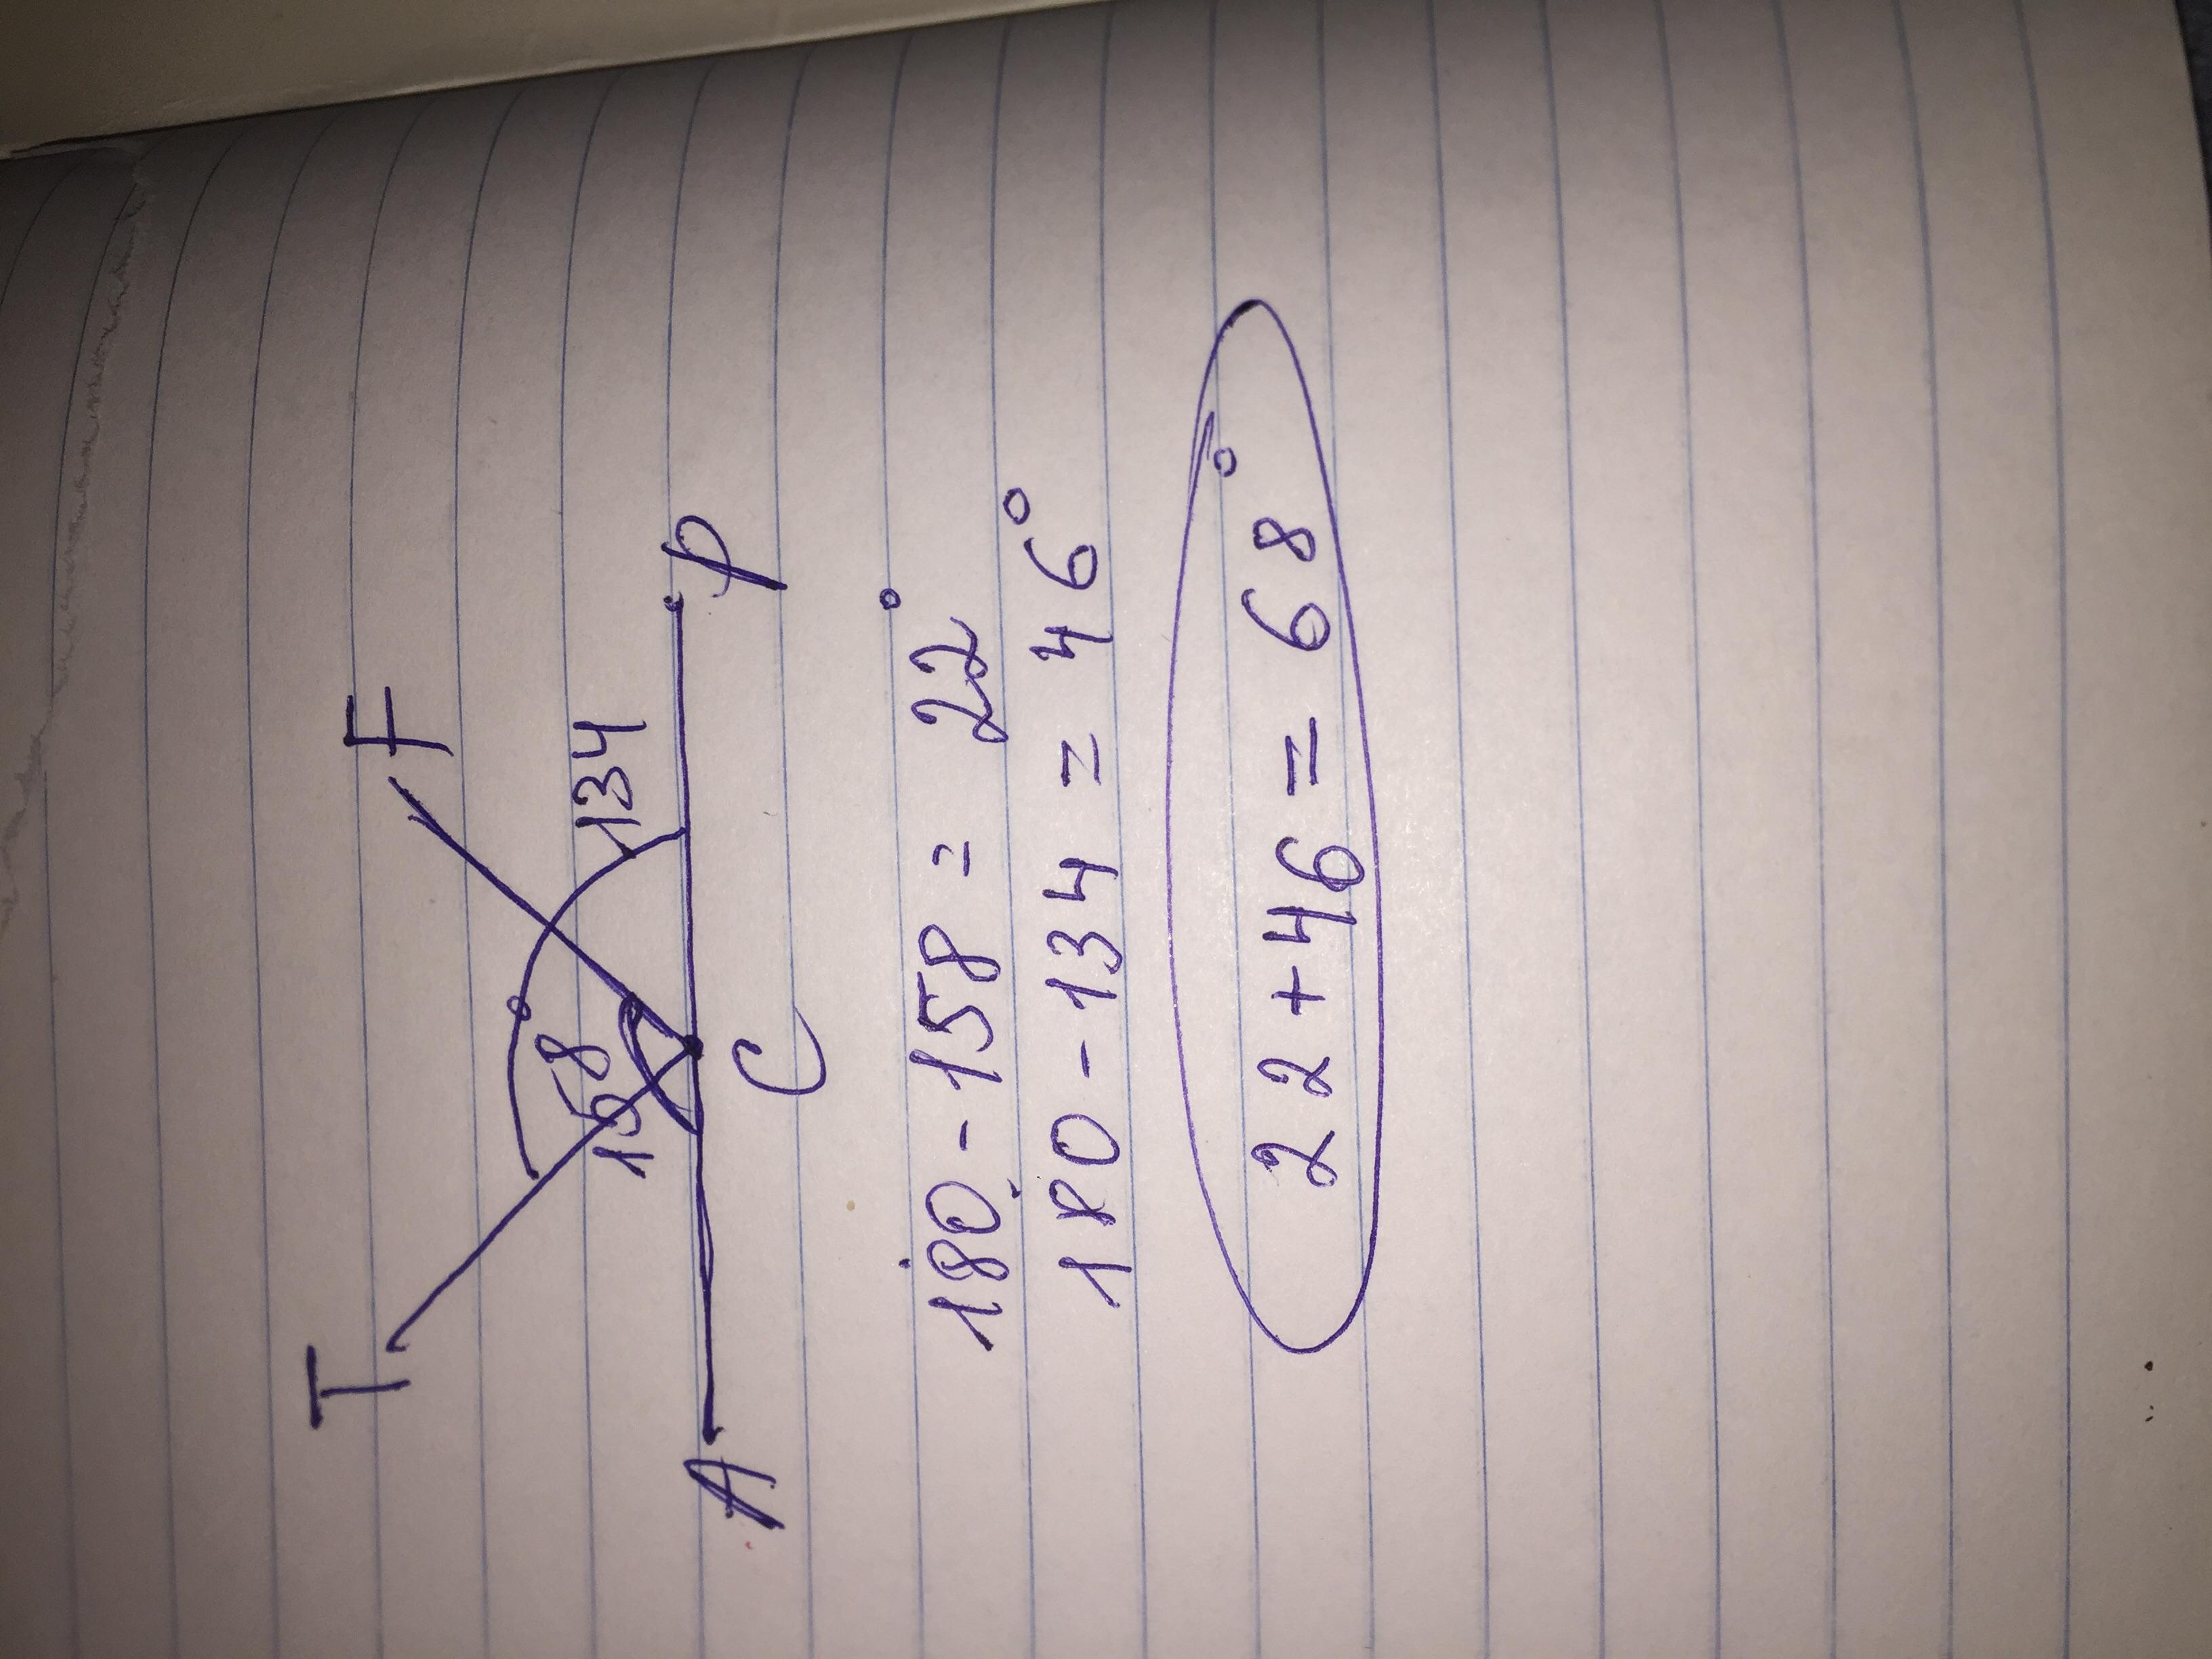 T F
158 134
A C P
180 - 158 = 22°
180 - 134 = 46°
22 + 46 = 68°